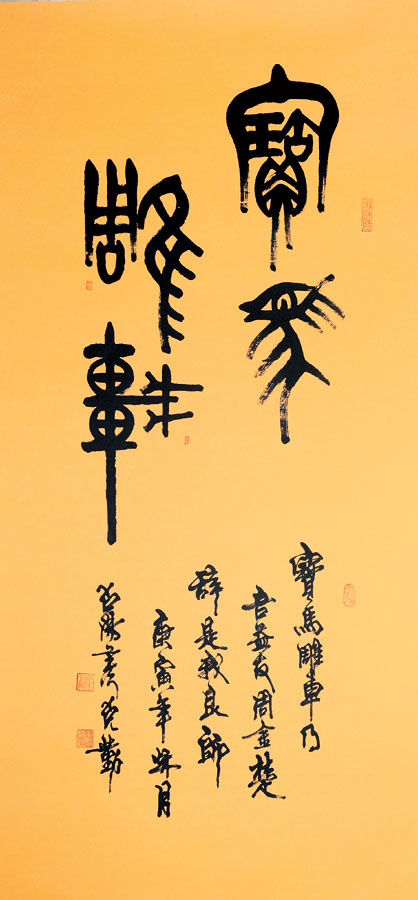 寶馬
雕車
寶馬雕車乃
吾益友周金楚
辭是我良師
庚寅年月
克勤